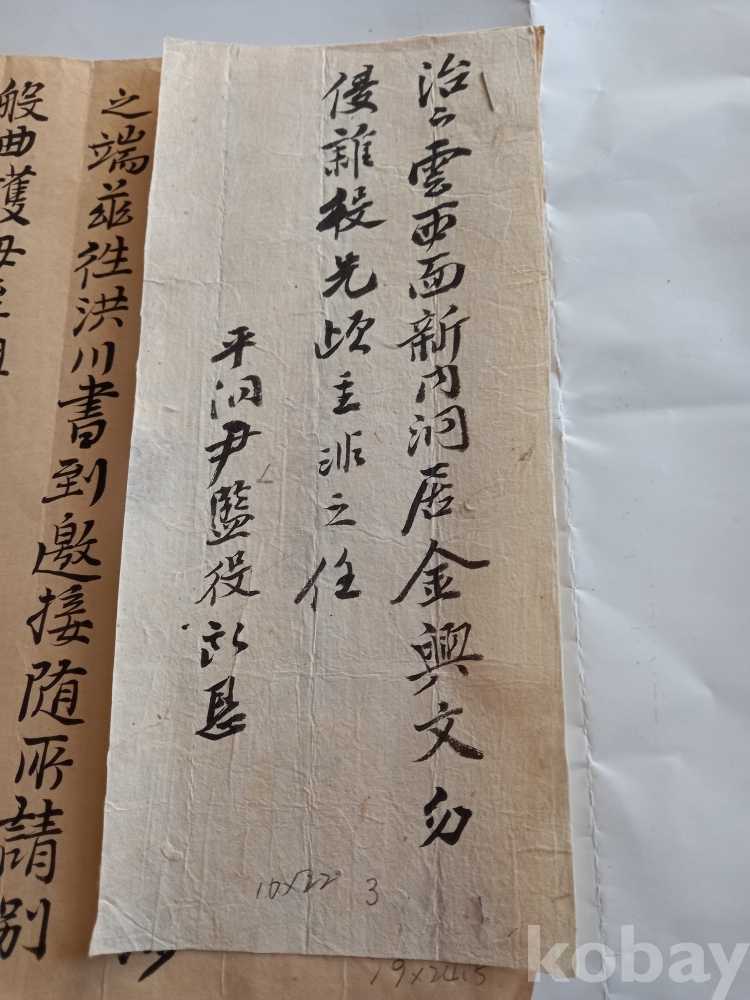 治下雲西面新內洞居金興文勿
侵雜役先頉主非之任
平洞尹監役
之端茲往洪川書到邀接随所請別
般曲護毋
10×22 3
19×24.5
kobay